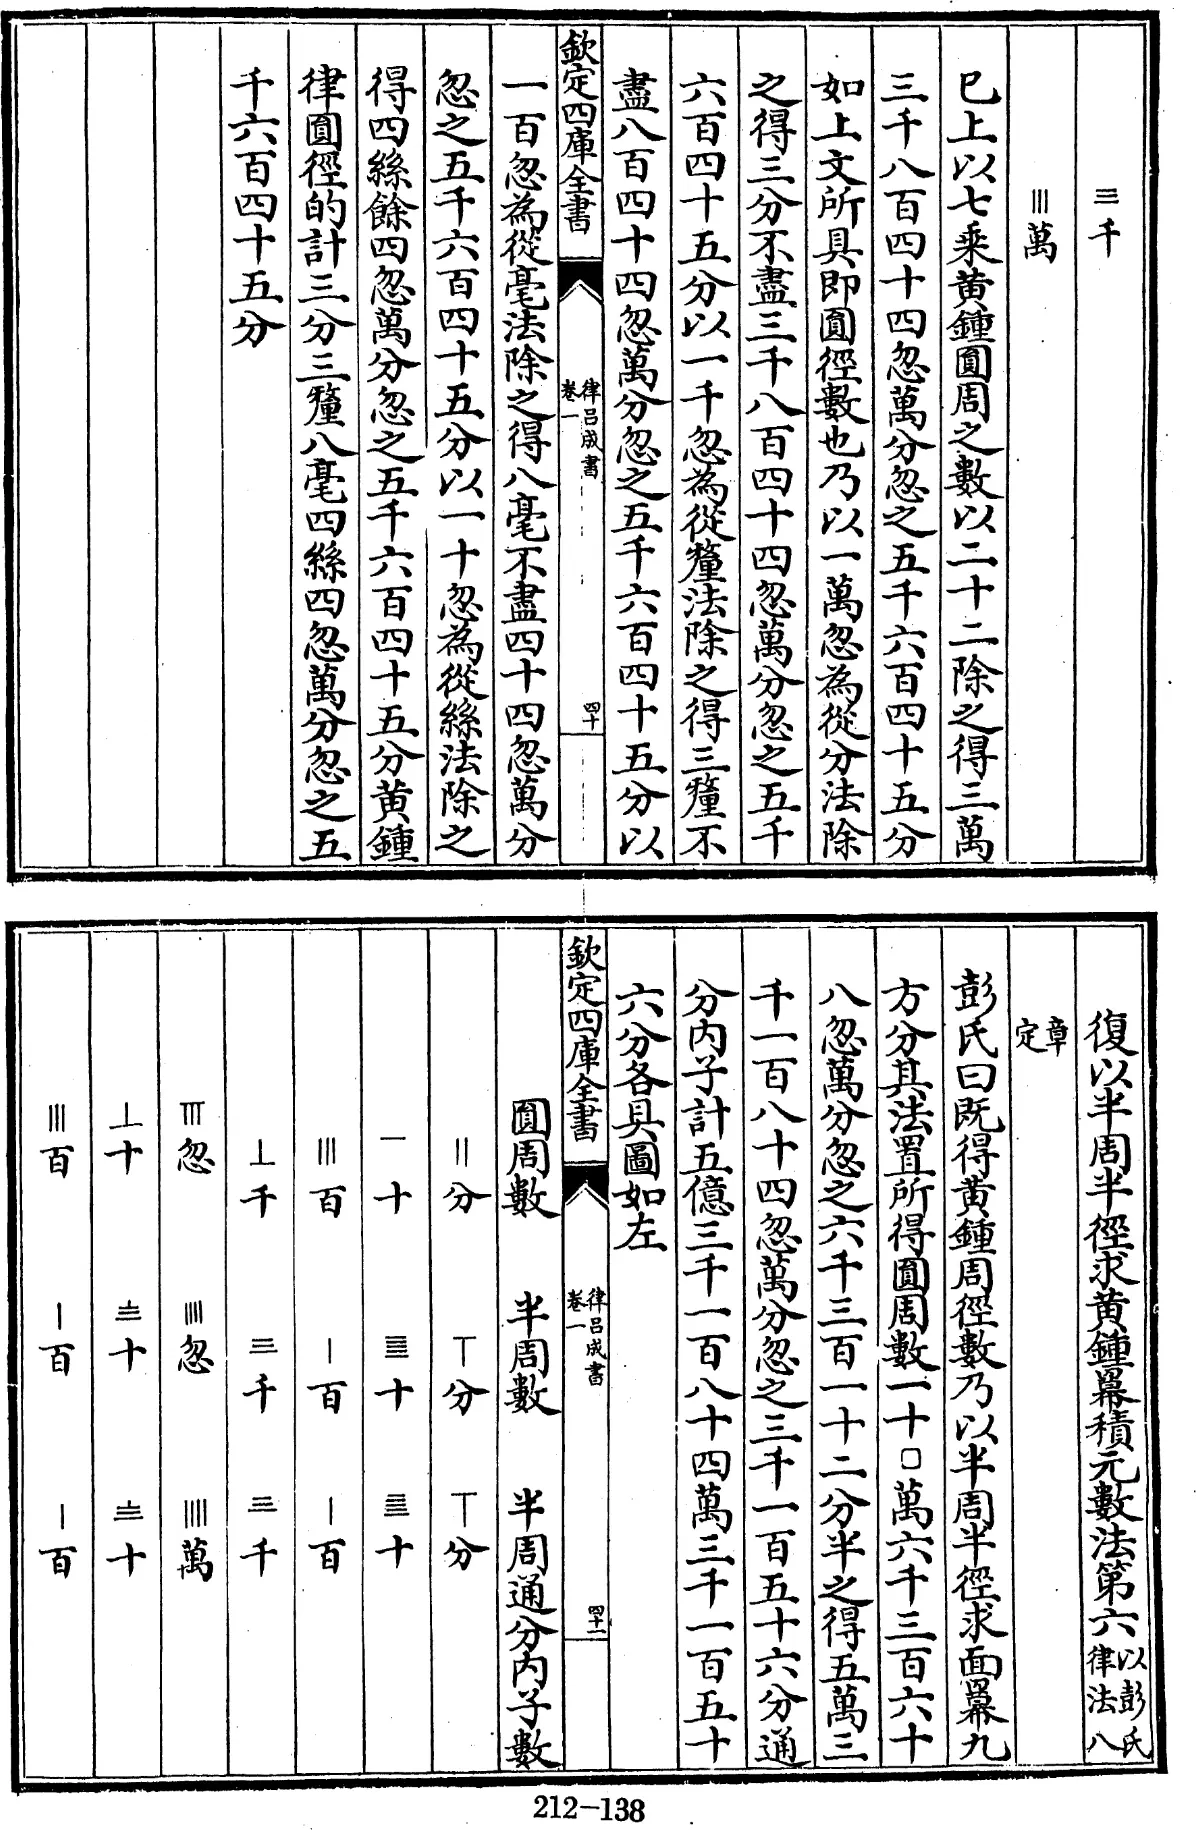 𝍢千
𝍫萬
已上以七乘黄鍾圓周之數以二十二除之得三萬
三千八百四十四忽萬分忽之五千六百四十五分
如上文所具即圓徑數也乃以一萬忽為從分法除
之得三分不盡三千八百四十四忽萬分忽之五千
六百四十五分以一千忽為從釐法除之得三釐不
盡八百四十四忽萬分忽之五千六百四十五分以
欽定四庫全書 律吕成書 卷一 四十
一百忽為從毫法除之得八毫不盡四十四忽萬分
忽之五千六百四十五分以一十忽為從絲法除之
得四絲餘四忽萬分忽之五千六百四十五分黄鍾
律圓徑的計三分三釐八毫四絲四忽萬分忽之五
千六百四十五分
復以半周半徑求黄鍾冪積元數法第六以彭氏律法八
章定
彭氏曰既得黄鍾周徑數乃以半周半徑求面冪九
方分其法置所得圓周數一十□萬六千三百六十
八忽萬分忽之六千三百一十二分半之得五萬三
千一百八十四忽萬分忽之三千一百五十六分通
分内子計五億三千一百八十四萬三千一百五十
六分各具圖如左
欽定四庫全書 律吕成書 卷一 四十一
圓周數 半周數 半周通分内子數
𝍪分 𝍮分 𝍮分
𝍠十 𝍤十 𝍤十
𝍫百 𝍩百 𝍩百
𝍥千 𝍢千 𝍢千
𝍰忽 𝍬忽 𝍬萬
𝍥十 𝍧十 𝍧十
𝍫百 𝍩百 𝍩百
212-138